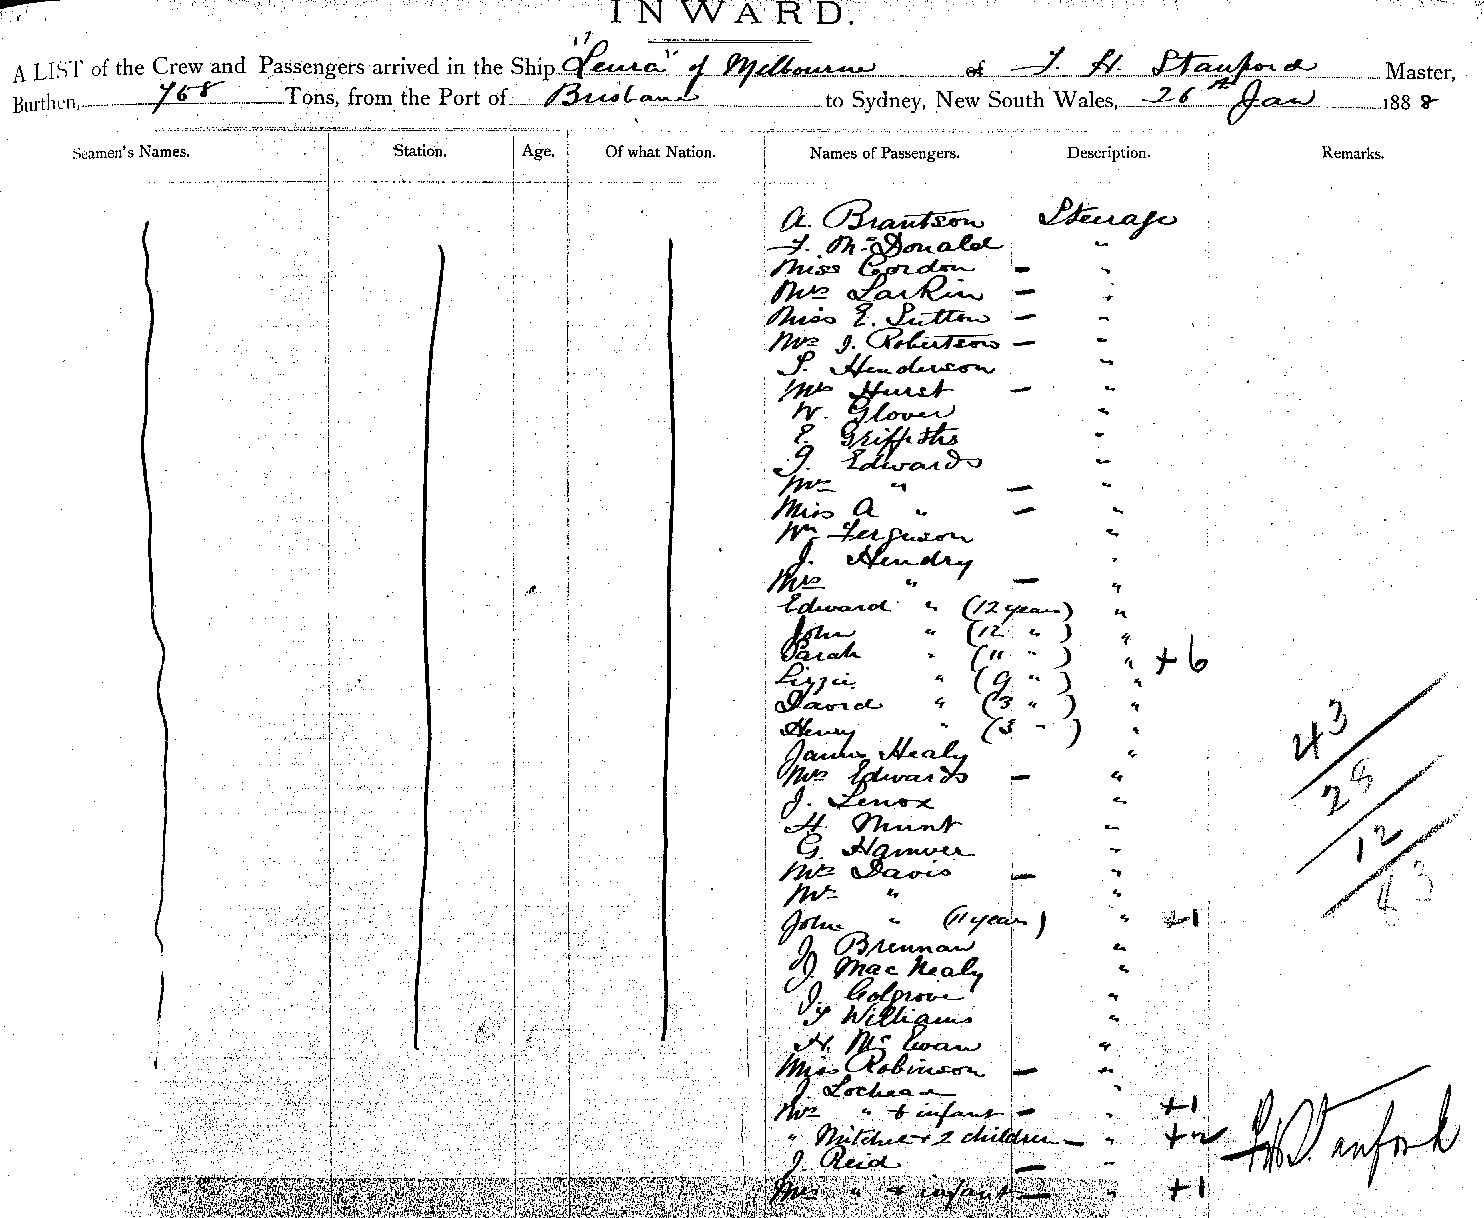 INWARD.
A LIST of the Crew and Passengers arrived in the Ship "Leura" of Melbourne of F. H. Stanford Master,
Burthen, 768 Tons, from the Port of Brisbane to Sydney, New South Wales, 26th Jan 1888
Seamen's Names. Station. Age. Of what Nation. Names of Passengers. Description. Remarks.
A. Brantson Steerage
F. McDonald "
Miss Gordon — "
Mrs Larkin — "
Miss E. Sutton — "
Mrs J. Robertson — "
S. Henderson "
Mrs Hurst — "
W. Glover "
E. Griffiths "
J. Edwards "
Mrs " — "
Miss A " — "
Wm Ferguson "
J. Hendry "
Mrs " — "
Edward " (12 years) "
John " (12 " ) "
Sarah " (11 " ) " +6
Lizzie " (9 " ) "
David " (3 " ) "
Henry " (3 " ) "
James Healy "
Mrs Edwards — "
J. Lenox "
H. Munt "
G. "
Mrs Davis — "
Mr " "
John " (11 years) " +1
J. Brennan "
J. MacNealy "
J. Colgrove "
T Williams "
H. McEwan "
Miss Robinson — "
J. Lochead "
Mrs " & infant — " +1
" & 2 children — " +2
J. Reid — "
Mrs " & infant — " +1
43
28
12
83
FHStanford